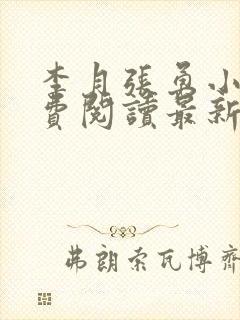 李月張勇小
費閱讀最新
弗朗索瓦博齊